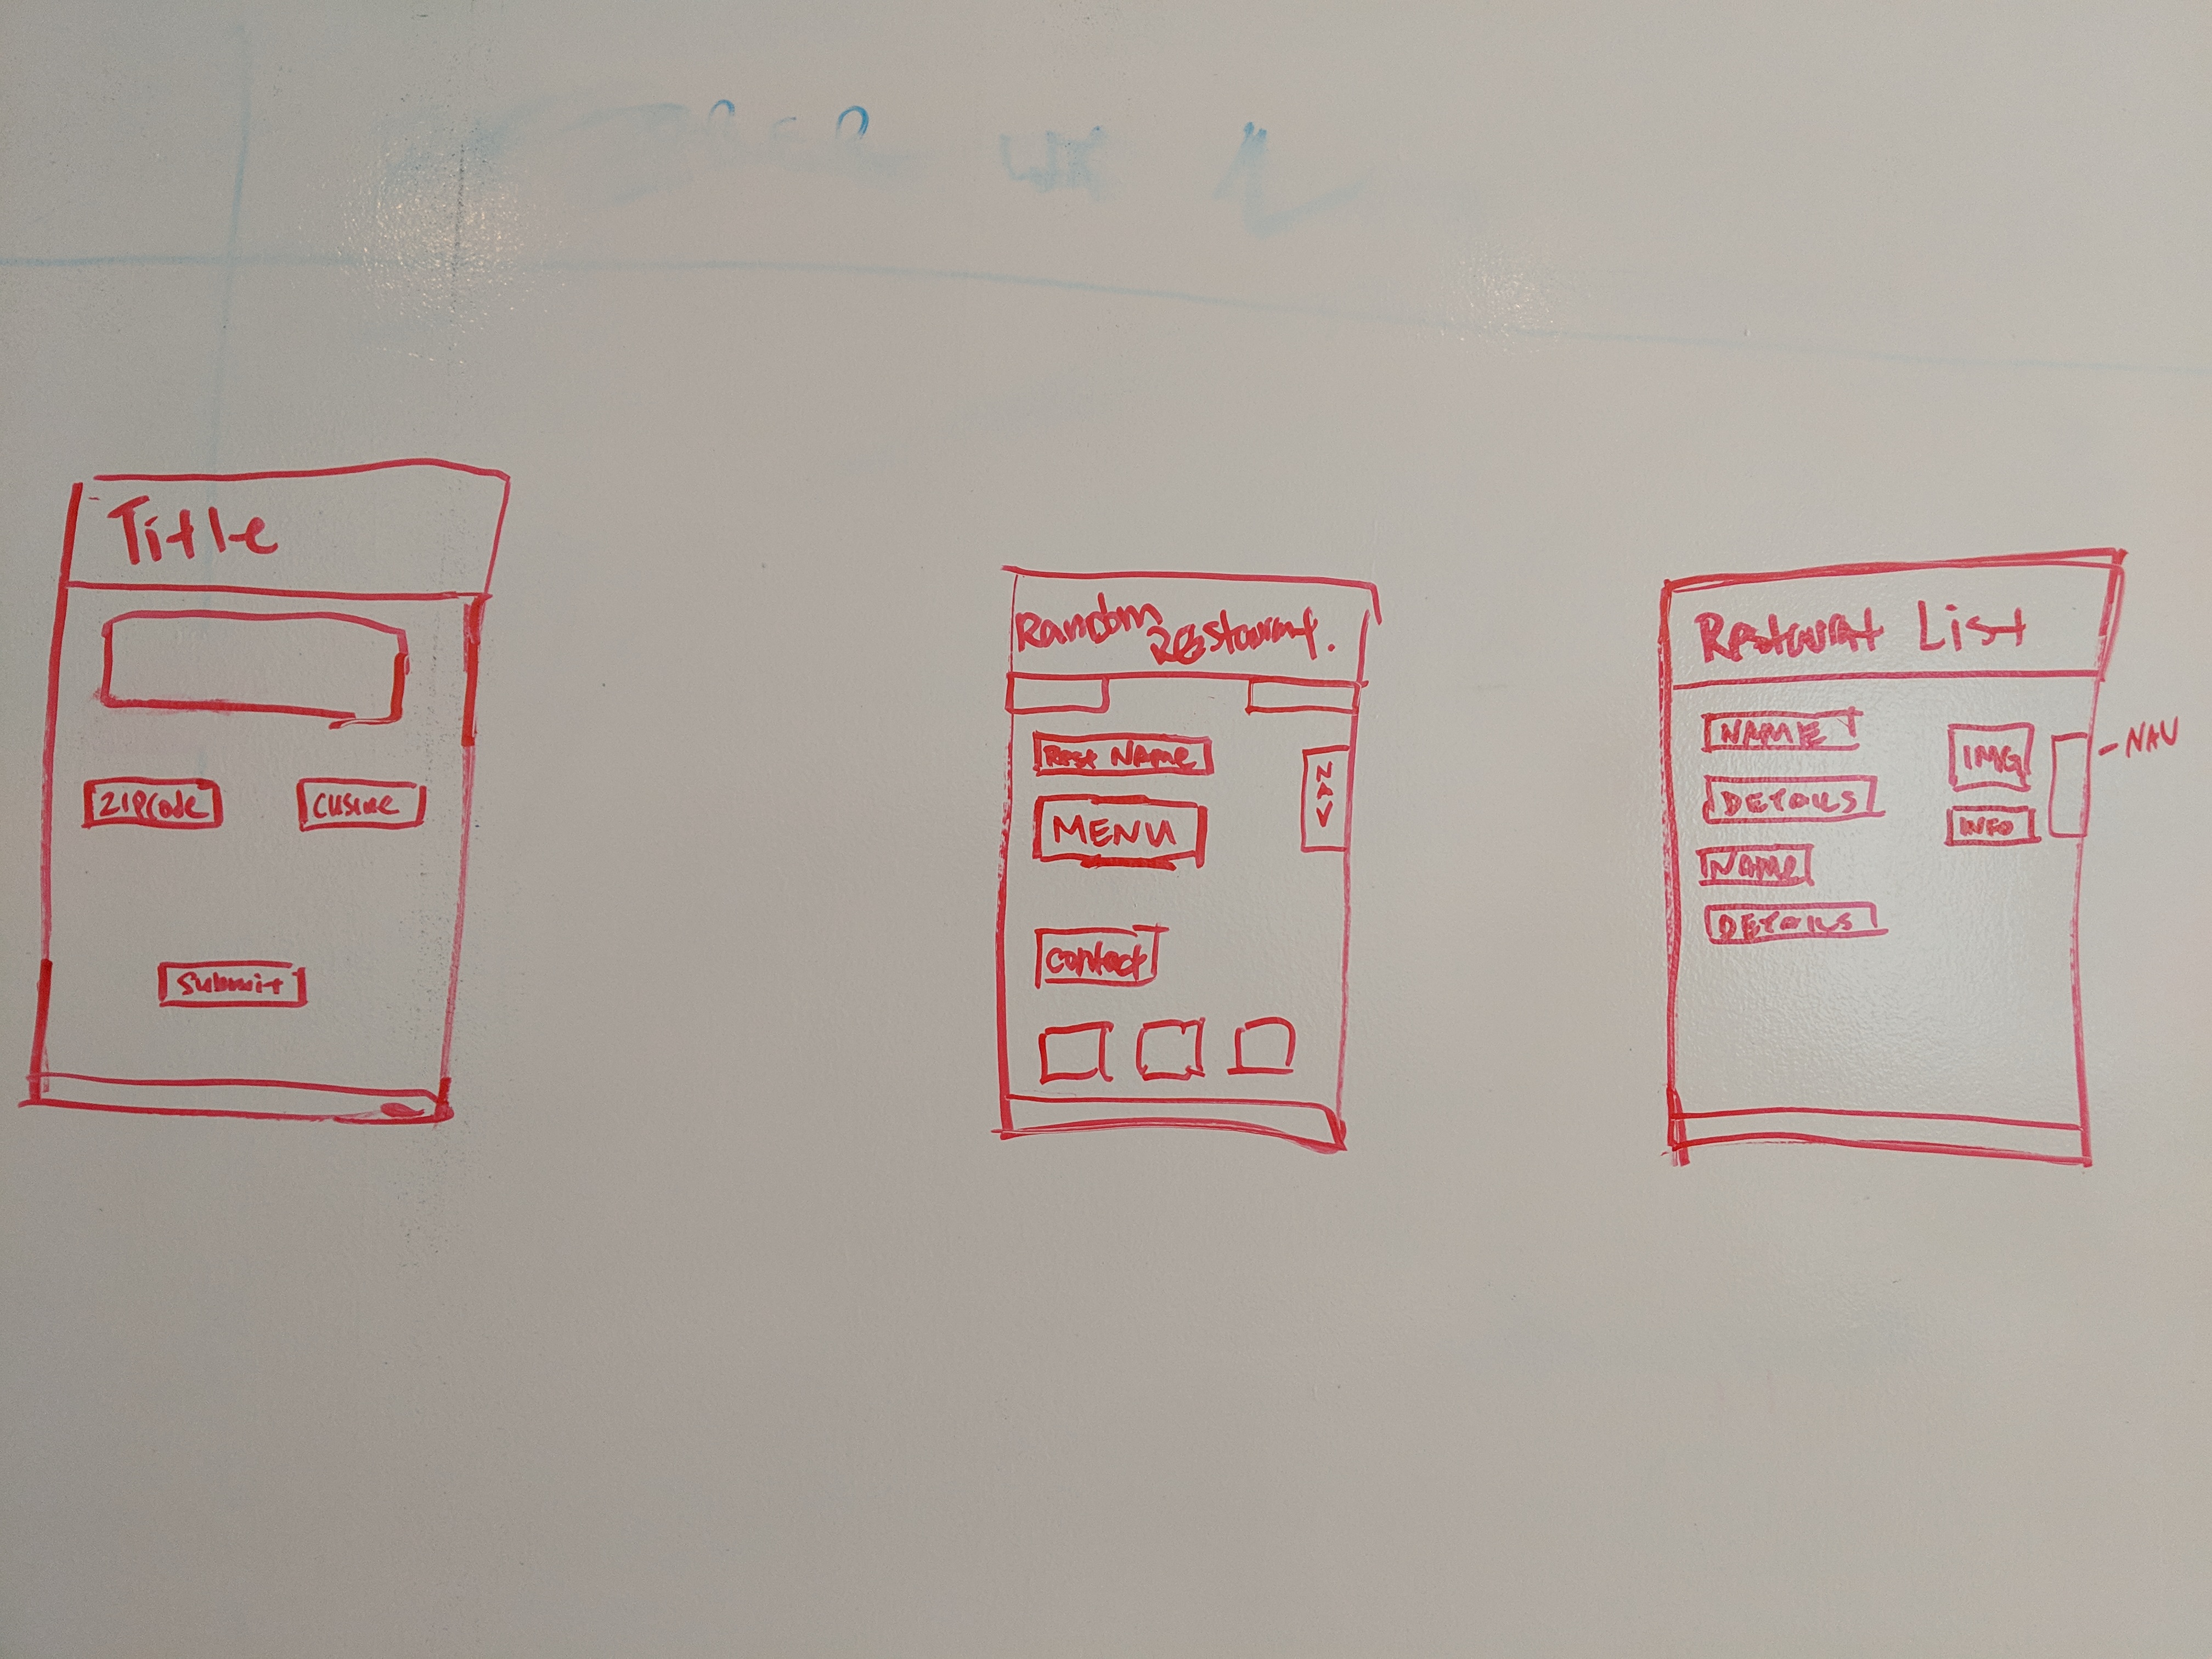 Title
ZIPCode
Cusine
Submit
Random
Restaurant.
Rest NAME
NAV
MENU
Contact
Restaurant List
NAME
IMG
NAV
DETAILS
INFO
NAME
DETAILS